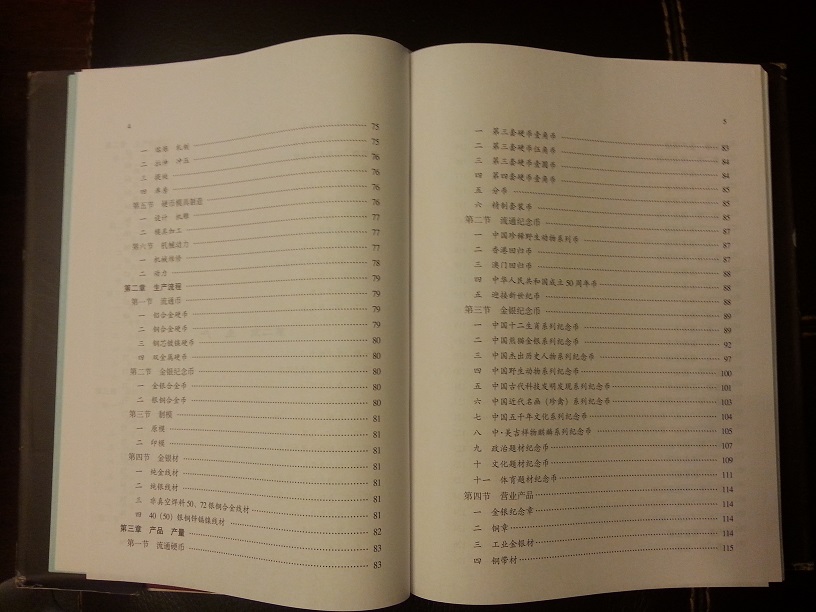 4
一 熔炼 轧板 75
二 拉伸 冲压 75
三 76
四 76
第五节 硬币模具制造 76
一 设计 机雕 76
二 模具加工 77
第六节 机械动力 77
一 机械维修 77
二 动力 78
第二章 生产流程 79
第一节 流通币 79
一 铝合金硬币 79
二 铜合金硬币 79
三 钢芯镀镍硬币 80
四 双金属硬币 80
第二节 金银纪念币 80
一 金银合金币 80
二 银铜合金币 80
第三节 制模 81
一 原模 81
二 印模 81
第四节 金银材 81
一 纯金线材 81
二 纯银线材 81
三 非真空焊料50、72银铜合金线材 81
四 40（50）银铜锌镉镍线材 82
第三章 产品 产量 83
第一节 流通硬币 83
5
一 第三套硬币壹角币 83
二 第三套硬币伍角币 84
三 第三套硬币壹圆币 84
四 第四套硬币壹角币 85
五 分币 85
六 精制套装币 85
第二节 流通纪念币 87
一 中国珍稀野生动物系列币 87
二 香港回归币 87
三 澳门回归币 88
四 中华人民共和国成立50周年币 88
五 迎接新世纪币 88
第三节 金银纪念币 89
一 中国十二生肖系列纪念币 89
二 中国熊猫金银系列纪念币 92
三 中国杰出历史人物系列纪念币 97
四 中国野生动物系列纪念币 100
五 中国古代科技发明发现系列纪念币 101
六 中国近代名画（珍禽）系列纪念币 103
七 中国五千年文化系列纪念币 104
八 中·美吉祥物麒麟系列纪念币 105
九 政治题材纪念币 107
十 文化题材纪念币 109
十一 体育题材纪念币 111
第四节 营业产品 114
一 金银纪念章 114
二 铜章 114
三 工业金银材 114
四 铜带材 115